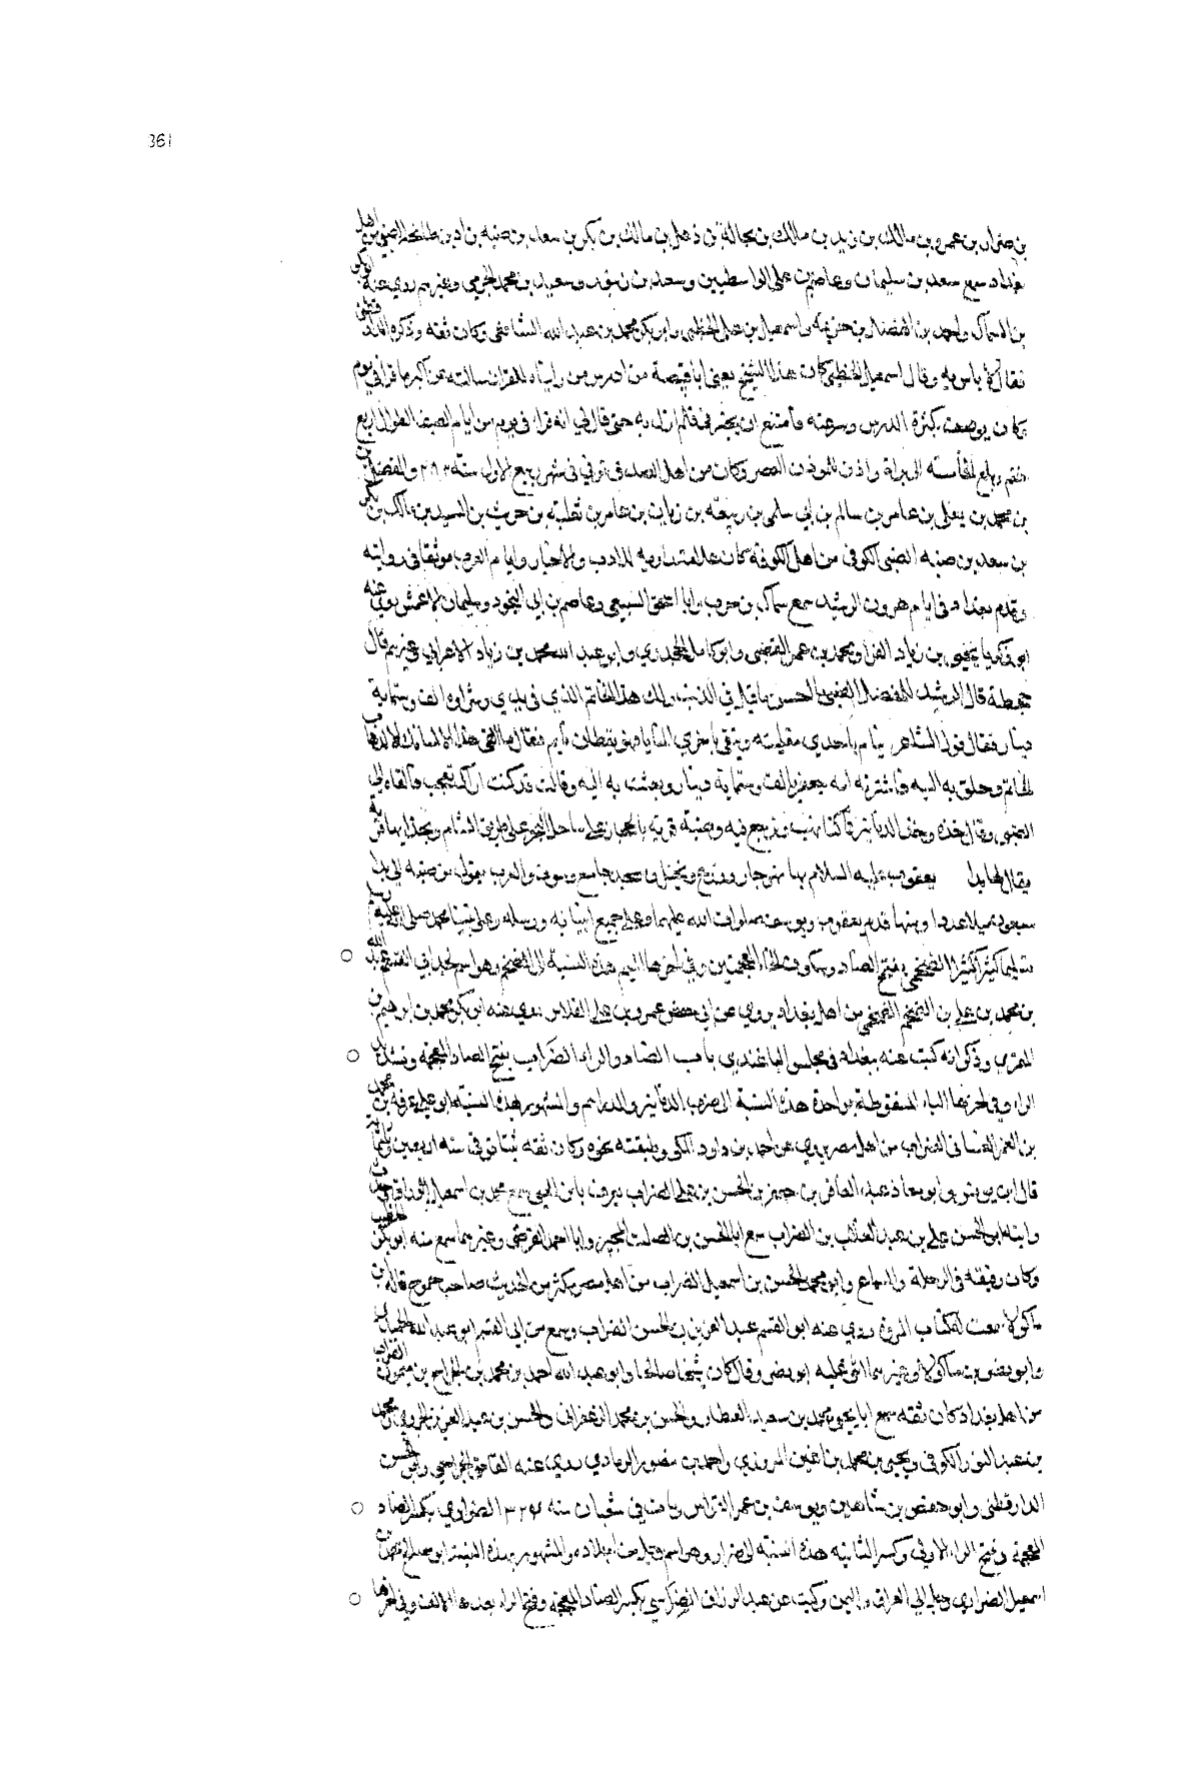 361
بن ضرار بن عمرو بن مالك بن زيد بن مالك بن بجالة بن ذهل بن مالك بن بكر بن سعد بن ضبه بن اد بن طابخة الضبي من اهل
بغداد سمع سعد بن سليمان وعاصم بن علي الواسطيين وسعد بن زنبور وسعيد بن محمد الجرمي وغيرهم روي عنه ابو
بن السماك واحمد بن الفضل بن خزيمه واسمعيل بن علي الخطبي وابو بكر محمد بن عبد الله الشافعي وكان ثقه وذكره الدار قطني
فقال لا باس به وقال اسمعيل الخطبي كان هذا الشيخ يعني ابا قبيصة من ادرس من رايناه للقران سالته عن اكبر ما قرا في يوم
وكان يوصف بكثرة الدرس وسرعته فامتنع ان يخبرني فلم ازل به حتى قال لي انه قرا في يوم من ايام الصيف الطوال اربع
ختم وبلغ في الخامسة الى براة واذن المؤذن العصر وكان من اهل الصدق توفي في شهر ربيع الاول سنة ٢٨٢ والمفضل بن
بن محمد بن يعلى بن عامر بن سالم بن ابي سلمى بن ربيعه بن زبان بن عامر بن ثعلبه بن حرث بن السيد بن مالك بن بكر
بن سعد بن ضبه الضبي الكوفي من اهل الكوفة كان علامة راوية للادب والاخبار وايام العرب موثقا في روايته
وقدم بغداد في ايام هرون الرشيد سمع سماك بن حرب وابا اسحق السبيعي وعاصم بن ابي النجود وسليمان الاعمش روي عنه
ابو زكريا يحيى بن زياد الفرا ومحمد بن عمر القصبي وابو كامل الجحدري وابو عبد الله محمد بن زياد الاعرابي وغيرهم قال
جحظة قال الرشيد للمفضل الضبي ما احسن ما قيل في الذئب ولك هذا الخاتم الذي في يدي وشراوه الف وستماية
دينار فقال قول الشاعر ينام باحدي مقلتيه ويتقي باخري المنايا فهو يقظان نايم فقال ما القي هذا على لسانك الا لذهاب
الخاتم وحلق به اليه فاشترته ام جعفر بالف وستماية دينار وبعثت به اليه وقالت قد كنت اراك تعجب به فالقاه الى
الضبي وقال خذه وخذ الدنانير فما كنا نهب شيا ونرجع فيه وضبة قرية بالحجاز على ساحل البحر على طريق الشام وبحذايها قرية
يقال لها بدا يعقوب عليه السلام بها نهر جار وزرع ونخيل ومسجد جامع وسوق والعرب يقولون من ضبه الى بدا
سبعون ميلا عددا ومنها قدم يعقوب ويوسف صلوات الله عليهما وعلى جميع انبيائه ورسله وعلى نبينا محمد صلى الله عليه وسلم
تسليما كثيرا كثيرا الضخمي بفتح الضاد وسكون الخاء المعجمتين وفي اخرها الميم هذه النسبة الى الضخم وهو اسم لجد ابي الفتح عبد الله
بن محمد بن علي بن الضخم الضخمي من اهل بغداد يروي عن ابي حفص عمرو بن علي الفلاس روي عنه ابو بكر محمد بن ابرهيم بن
المقري وذكر انه كتب عنه ببغداد في مجلس الباغندي باب الضاد والراء الضراب بفتح الضاد المعجمة وتشديد
الراء وفي اخرها الباء المنقوطة بواحدة هذه النسبة الى ضرب الدنانير والدراهم والمشهور بهذه النسبة ابو علي عرفه بن محمد
بن الغمر الغساني الضراب من اهل مصر يروي عن احمد بن داود المكي وطبقته نحوه وكان ثقه ثبتا توفي سنه اربعين وثلثماية
قال ابن يونس وابو معاذ عبد الغافر بن جعفر بن الحسن بن علي الضراب يعرف بابن
وابنه ابو الحسن علي بن عبد الغالب بن الضراب سمع ابا الحسن بن الصلت المجبر وابا احمد الفرضي وغيرهما سمع منه ابو بكر الخطيب
وكان رفيقه في الرحلة والسماع وابو محمد الحسن بن اسمعيل الضراب من اهل مصر يكثر من الحديث صاحب جموع قاله ابن
ماكولا سمعت كتاب المروة روي عنه ابو القسم عبد العزيز بن الحسن الضراب وسمع من ابي القسم ابو عبد الله الحميدي
وابو نصر بن ماكولا وغيرهما اثنى عليه ابو نصر وقال كان شيخا صالحا وابو عبد الله احمد بن محمد بن الجراح بن ميمون الضراب
من اهل بغداد كان ثقه سمع ابا يحيى محمد بن سعيد العطار والحسن بن محمد الزعفراني والحسن بن عبد العزيز الجروي ومحمد
بن عبد النور الكوفي ويحيى بن محمد بن اعين المروزي واحمد بن منصور الرمادي روي عنه القاضي الجراحي وابو الحسن
الدارقطني وابو حفص بن شاهين ويوسف بن عمر القواس ومات في شعبان سنه ٣٢٤ الضراري بكسر الضاد
المعجمة وفتح الراء الاولى وكسر الثانيه هذه النسبة الى ضرار وهو اسم والمشهور بهذه النسبة ابو صالح محمد بن
اسمعيل الضراري رحل الى العراق واليمن وكتب عن عبد الرزاق الضراسي بكسر الضاد المعجمة وفتح الراء بعدها الالف وفي اخرها